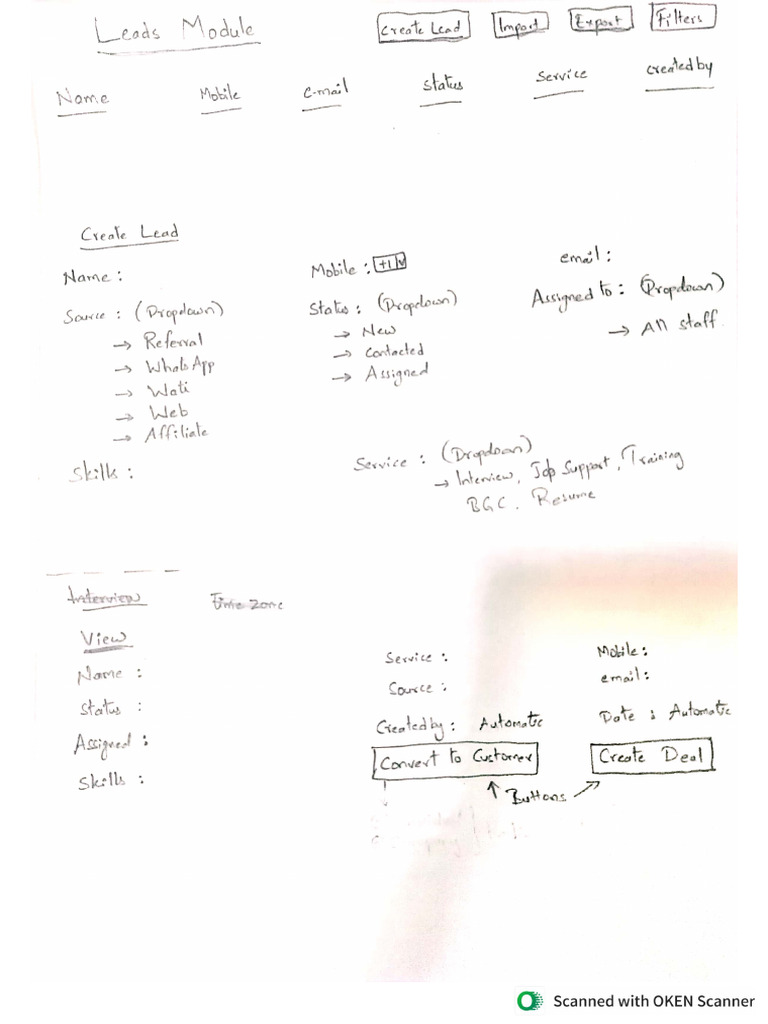 Leads Module Create Lead Import Export Filters
Name Mobile E-mail Status Service Created by
Create Lead
Name : Mobile : +1 email :
Source : (Dropdown) Status : (Dropdown) Assigned to : (Dropdown)
→ Referral → New → All staff.
→ WhatsApp → Contacted
→ Wati → Assigned
→ Web
→ Affiliate
Skills : Service : (Dropdown)
→ Interview, Job Support, Training
BGC, Resume
Interview Time Zone
View
Name : Service : Mobile :
Status : Source : email :
Assigned : Created by : Automatic Date : Automatic
Skills : Convert to Customer Create Deal
Buttons
Scanned with OKEN Scanner